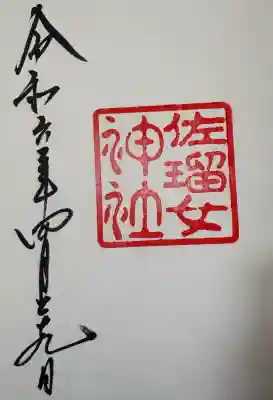 佐瑠女
神社
令和六年四月二十九日